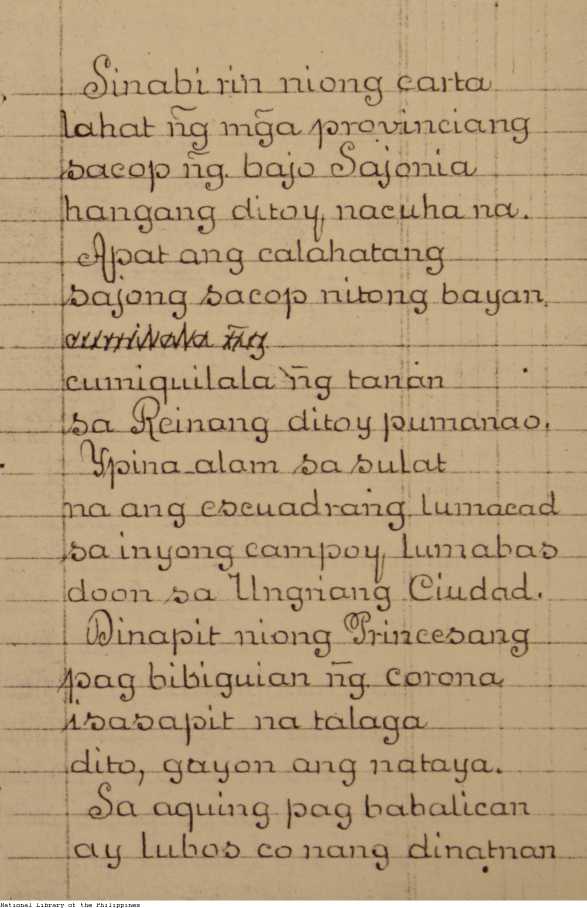 Sinabi rin niong carta
lahat ñg mg̃a provinciang
sacop ñg. bajo Sajonia
hangang ditoy, nacuha na.
Apat ang calahatang
sajong sacop nitong bayan,
ñg
cumiquilala ñg tanan
sa Reinang ditoy pumanao.
Ypina-alam sa sulat
na ang escuadrang lumacad
sa inyong campoy, lumabas
doon sa Ungriang Ciudad.
Dinapit niong Princesang
pag bibiguian ñg. corona,
isasapit na talaga
dito, gayon ang nataya.
Sa aquing pag babalican
ay lubos co nang dinatnan
National Library of the Philippines